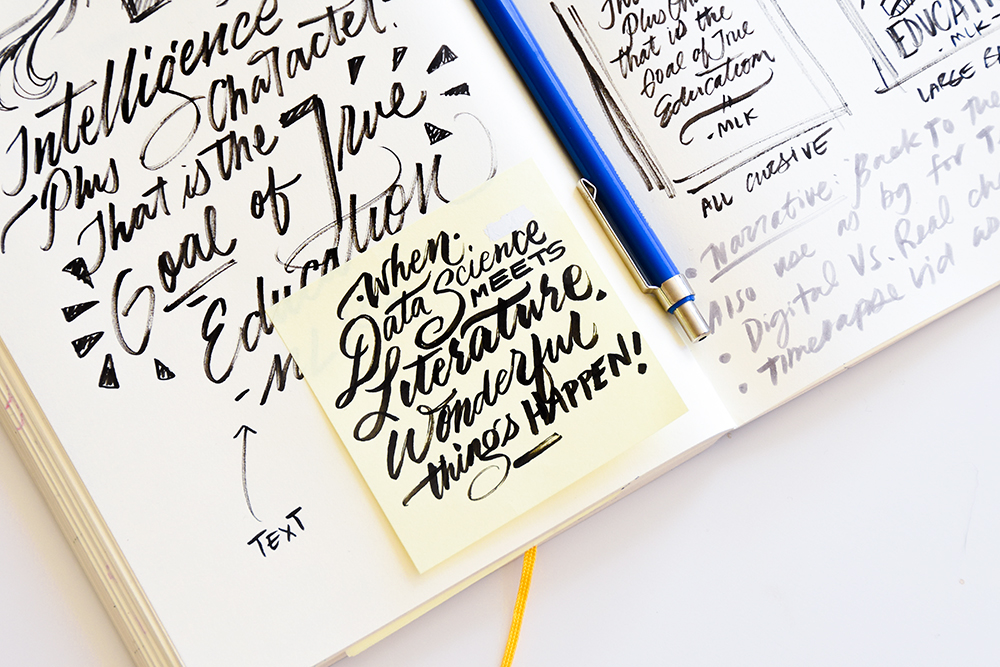 Intelligence
Plus Character.
That is the
Goal of True
Education
When
Data Science
MEETS
Literature,
Wonderful
things HAPPEN!
TEXT
Plus
that is the
Goal of True
Education
- MLK
ALL CURSIVE
EDUCATI
- MLK -
LARGE
Narrative: Back To The
use as bg for
Also
Digital VS. Real
Timelapse vid as